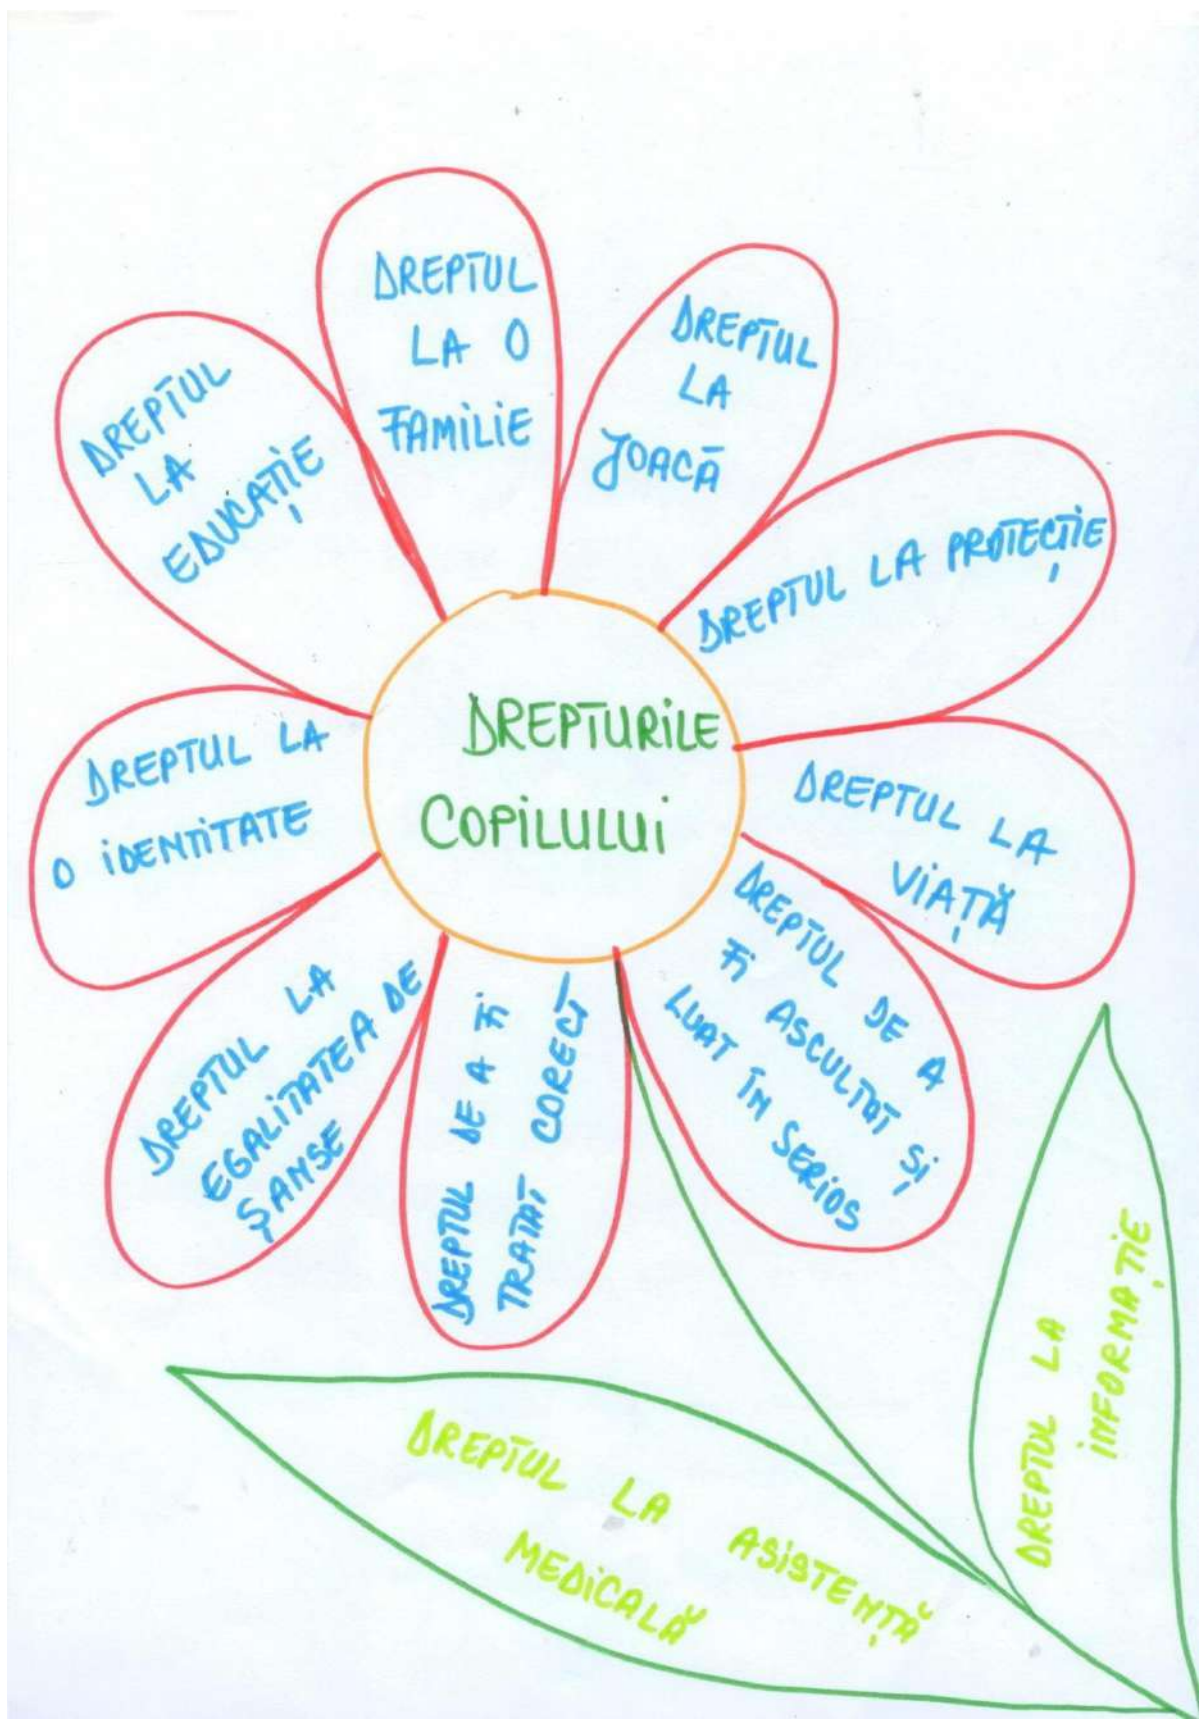 DREPTURILE
COPILULUI
DREPTUL
LA O
FAMILIE
DREPTUL
LA
JOACĂ
DREPTUL LA PROTECȚIE
DREPTUL LA
VIAȚĂ
DREPTUL DE A
FI ASCULTAT ȘI
LUAT ÎN SERIOS
DREPTUL DE A FI
TRATAT CORECT
DREPTUL LA
EGALITATEA DE
ȘANSE
DREPTUL LA
O IDENTITATE
DREPTUL
LA
EDUCAȚIE
DREPTUL LA ASISTENȚĂ
MEDICALĂ
DREPTUL LA
INFORMAȚIE